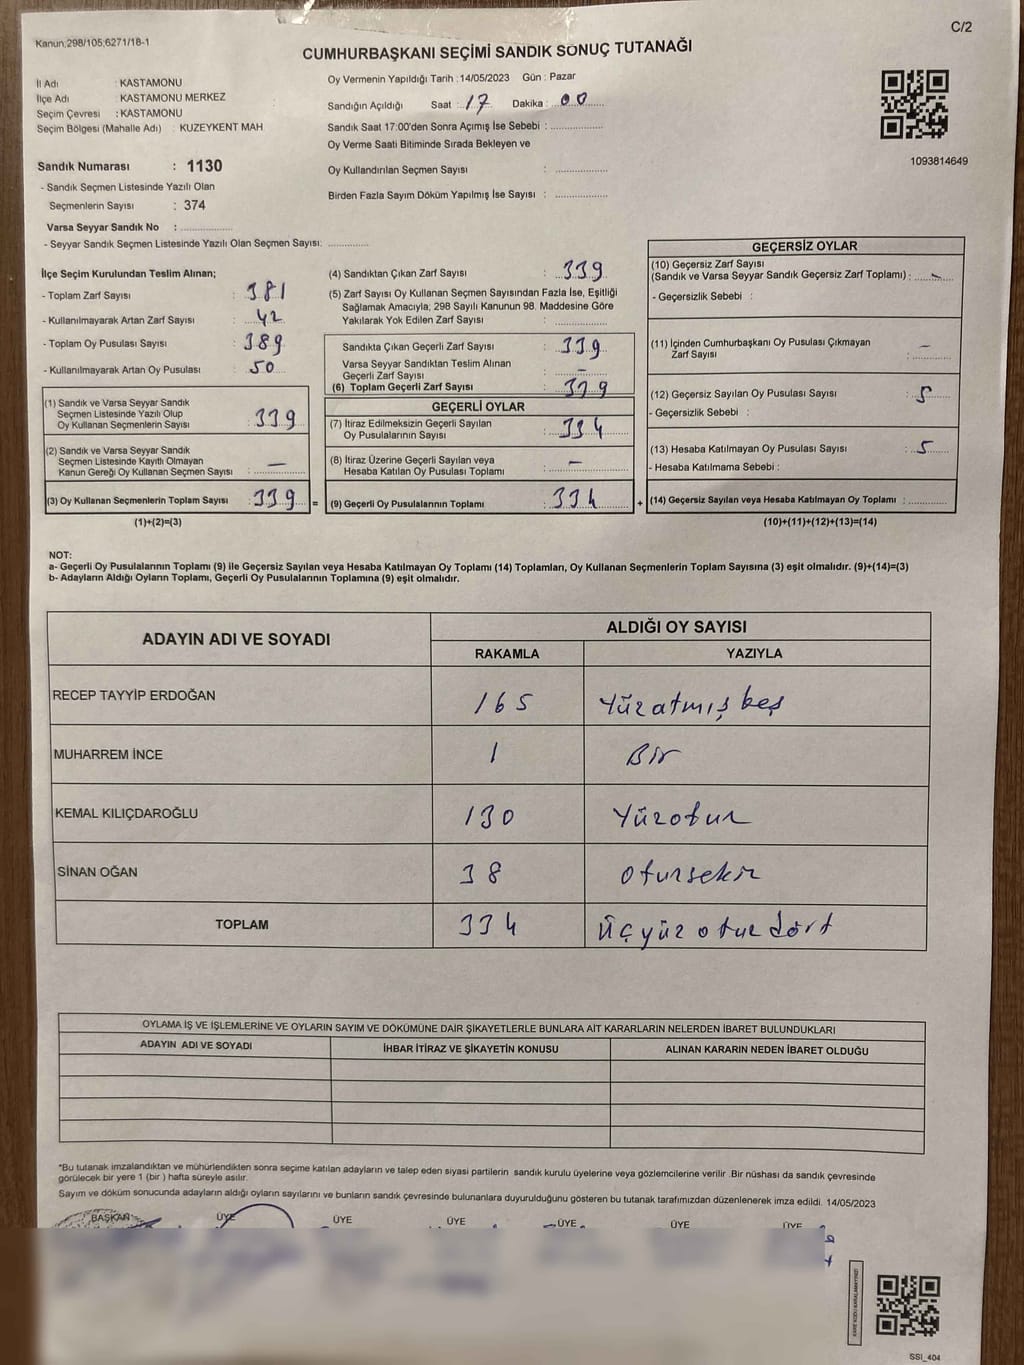 Kanun;298/105;6271/18-1
C/2
CUMHURBAŞKANI SEÇİMİ SANDIK SONUÇ TUTANAĞI
İl Adı : KASTAMONU
İlçe Adı : KASTAMONU MERKEZ
Seçim Çevresi : KASTAMONU
Seçim Bölgesi (Mahalle Adı) : KUZEYKENT MAH
Sandık Numarası : 1130
- Sandık Seçmen Listesinde Yazılı Olan
Seçmenlerin Sayısı : 374
Varsa Seyyar Sandık No : ..................
- Seyyar Sandık Seçmen Listesinde Yazılı Olan Seçmen Sayısı: ..............
Oy Vermenin Yapıldığı Tarih :14/05/2023 Gün : Pazar
Sandığın Açıldığı Saat : 17 Dakika : 00
Sandık Saat 17:00'den Sonra Açımış İse Sebebi : ..................
Oy Verme Saati Bitiminde Sırada Bekleyen ve
Oy Kullandırılan Seçmen Sayısı : ..................
Birden Fazla Sayım Döküm Yapılmış İse Sayısı : ..................
1093814649
İlçe Seçim Kurulundan Teslim Alınan;
- Toplam Zarf Sayısı : 381
- Kullanılmayarak Artan Zarf Sayısı : 42
- Toplam Oy Pusulası Sayısı : 389
- Kullanılmayarak Artan Oy Pusulası : 50
(1) Sandık ve Varsa Seyyar Sandık
Seçmen Listesinde Yazılı Olup
Oy Kullanan Seçmenlerin Sayısı : 339
(2) Sandık ve Varsa Seyyar Sandık
Seçmen Listesinde Kayıtlı Olmayan
Kanun Gereği Oy Kullanan Seçmen Sayısı : —
(3) Oy Kullanan Seçmenlerin Toplam Sayısı : 339 =
(1)+(2)=(3)
(4) Sandıktan Çıkan Zarf Sayısı : 339
(5) Zarf Sayısı Oy Kullanan Seçmen Sayısından Fazla İse, Eşitliği
Sağlamak Amacıyla; 298 Sayılı Kanunun 98. Maddesine Göre
Yakılarak Yok Edilen Zarf Sayısı : ..................
Sandıkta Çıkan Geçerli Zarf Sayısı : 339
Varsa Seyyar Sandıktan Teslim Alınan
Geçerli Zarf Sayısı : —
(6) Toplam Geçerli Zarf Sayısı : 339
GEÇERLİ OYLAR
(7) İtiraz Edilmeksizin Geçerli Sayılan
Oy Pusulalarının Sayısı : 334
(8) İtiraz Üzerine Geçerli Sayılan veya
Hesaba Katılan Oy Pusulası Toplamı : —
(9) Geçerli Oy Pusulalarının Toplamı : 334 +
GEÇERSİZ OYLAR
(10) Geçersiz Zarf Sayısı
(Sandık ve Varsa Seyyar Sandık Geçersiz Zarf Toplamı) : —
- Geçersizlik Sebebi :
(11) İçinden Cumhurbaşkanı Oy Pusulası Çıkmayan
Zarf Sayısı : —
(12) Geçersiz Sayılan Oy Pusulası Sayısı : 5
- Geçersizlik Sebebi :
(13) Hesaba Katılmayan Oy Pusulası Sayısı : 5
- Hesaba Katılmama Sebebi :
(14) Geçersiz Sayılan veya Hesaba Katılmayan Oy Toplamı : ............
(10)+(11)+(12)+(13)=(14)
NOT:
a- Geçerli Oy Pusulalarının Toplamı (9) ile Geçersiz Sayılan veya Hesaba Katılmayan Oy Toplamı (14) Toplamları, Oy Kullanan Seçmenlerin Toplam Sayısına (3) eşit olmalıdır. (9)+(14)=(3)
b- Adayların Aldığı Oyların Toplamı, Geçerli Oy Pusulalarının Toplamına (9) eşit olmalıdır.
ADAYIN ADI VE SOYADI ALDIĞI OY SAYISI
RAKAMLA YAZIYLA
RECEP TAYYİP ERDOĞAN 165 Yüzatmış beş
MUHARREM İNCE 1 Bir
KEMAL KILIÇDAROĞLU 130 Yüzotuz
SİNAN OĞAN 38 otuzsekiz
TOPLAM 334 Üçyüz otuz dört
OYLAMA İŞ VE İŞLEMLERİNE VE OYLARIN SAYIM VE DÖKÜMÜNE DAİR ŞİKAYETLERLE BUNLARA AİT KARARLARIN NELERDEN İBARET BULUNDUKLARI
ADAYIN ADI VE SOYADI İHBAR İTİRAZ VE ŞİKAYETİN KONUSU ALINAN KARARIN NEDEN İBARET OLDUĞU
*Bu tutanak imzalandıktan ve mühürlendikten sonra seçime katılan adayların ve talep eden siyasi partilerin sandık kurulu üyelerine veya gözlemcilerine verilir .Bir nüshası da sandık çevresinde
görülecek bir yere 1 (bir ) hafta süreyle asılır.
Sayım ve döküm sonucunda adayların aldığı oyların sayılarını ve bunların sandık çevresinde bulunanlara duyurulduğunu gösteren bu tutanak tarafımızdan düzenlenerek imza edildi. 14/05/2023
BAŞKAN ÜYE ÜYE ÜYE ÜYE ÜYE ÜYE
SSI_404